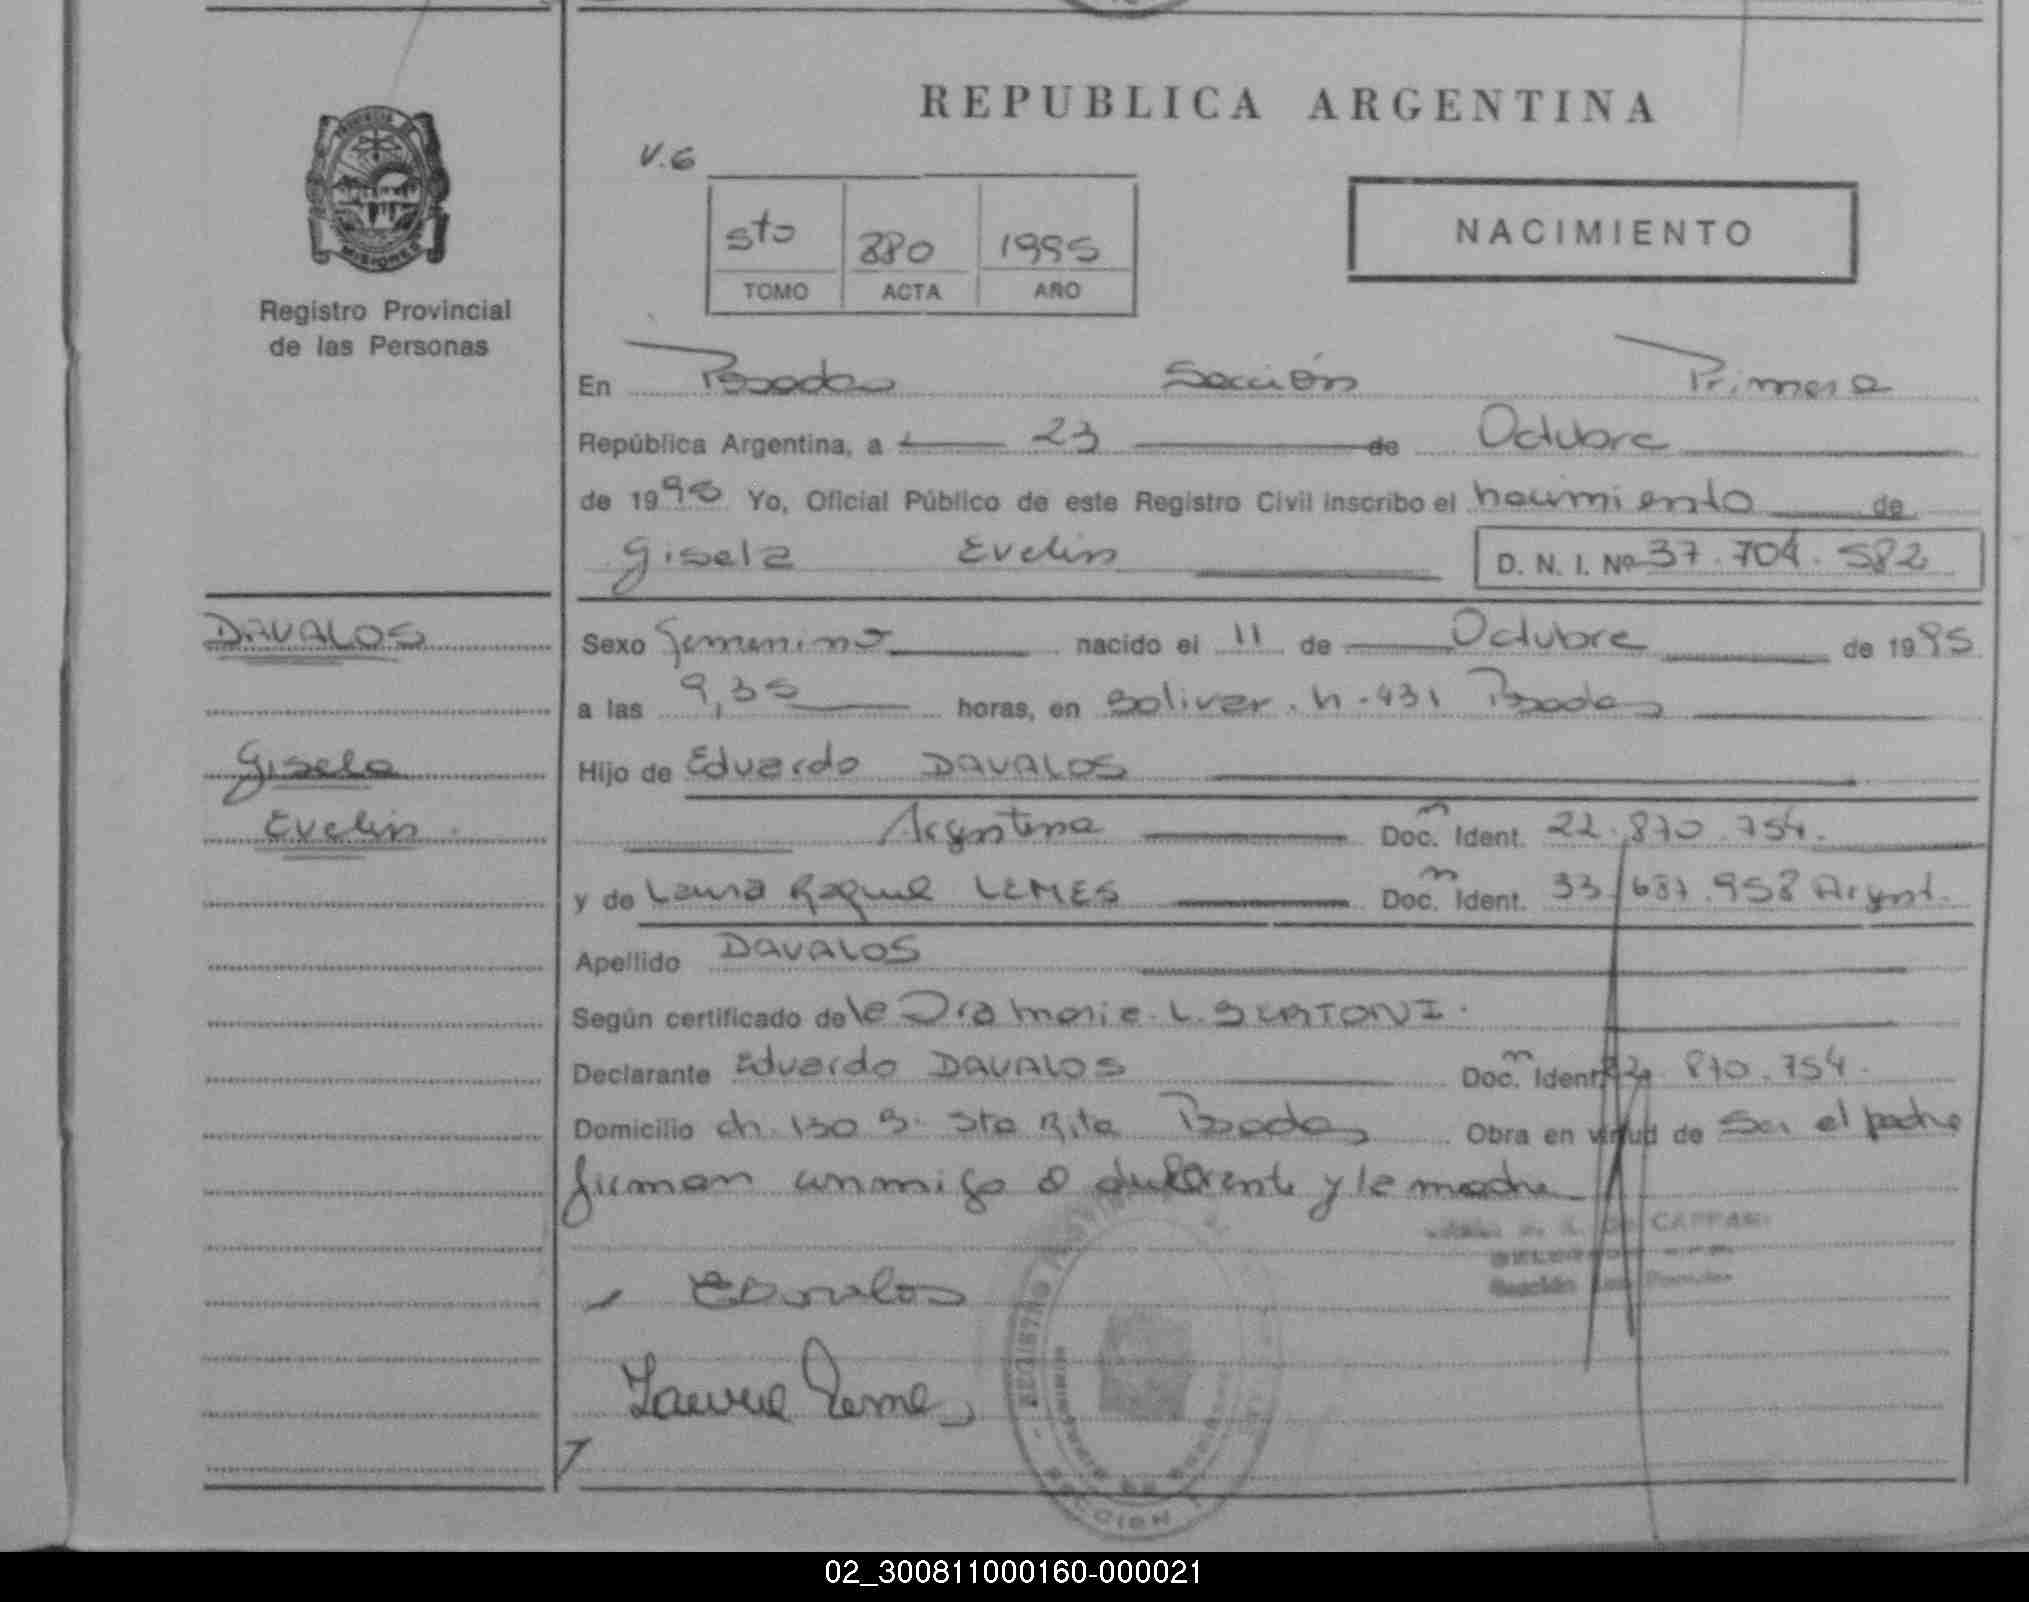 REPUBLICA ARGENTINA
V.6
NACIMIENTO
sto 880 1995
TOMO ACTA AÑO
PROVINCIA DE
MISIONES
Registro Provincial
de las Personas
En Posadas Sección Primera
República Argentina, a 23 de Octubre
de 1995 Yo, Oficial Público de este Registro Civil inscribo el nacimiento de
Gisela Evelin D. N. I. Nº 37.704.582
DAVALOS
Gisela
Evelin
Sexo femenino nacido el 11 de Octubre de 1995
a las 9,35 horas, en Bolivar. n. 431 Posadas
Hijo de Eduardo DAVALOS
Argentina Doc. Ident. 22.870.754.
y de Laura Raquel LEMES Doc. Ident. 33 687.958 Argent.
Apellido DAVALOS
Según certificado de la Dra Maria L. BERTONI.
Declarante Eduardo DAVALOS Doc. Ident. 22 870.754.
Domicilio ch. 130 B. Sta Rita Posadas Obra en virtud de ser el padre
firman conmigo el declarante y la madre
CAPPARI
Sección
EDavalos
Laura Lemes
REGISTRO
SECCION
02_300811000160-000021